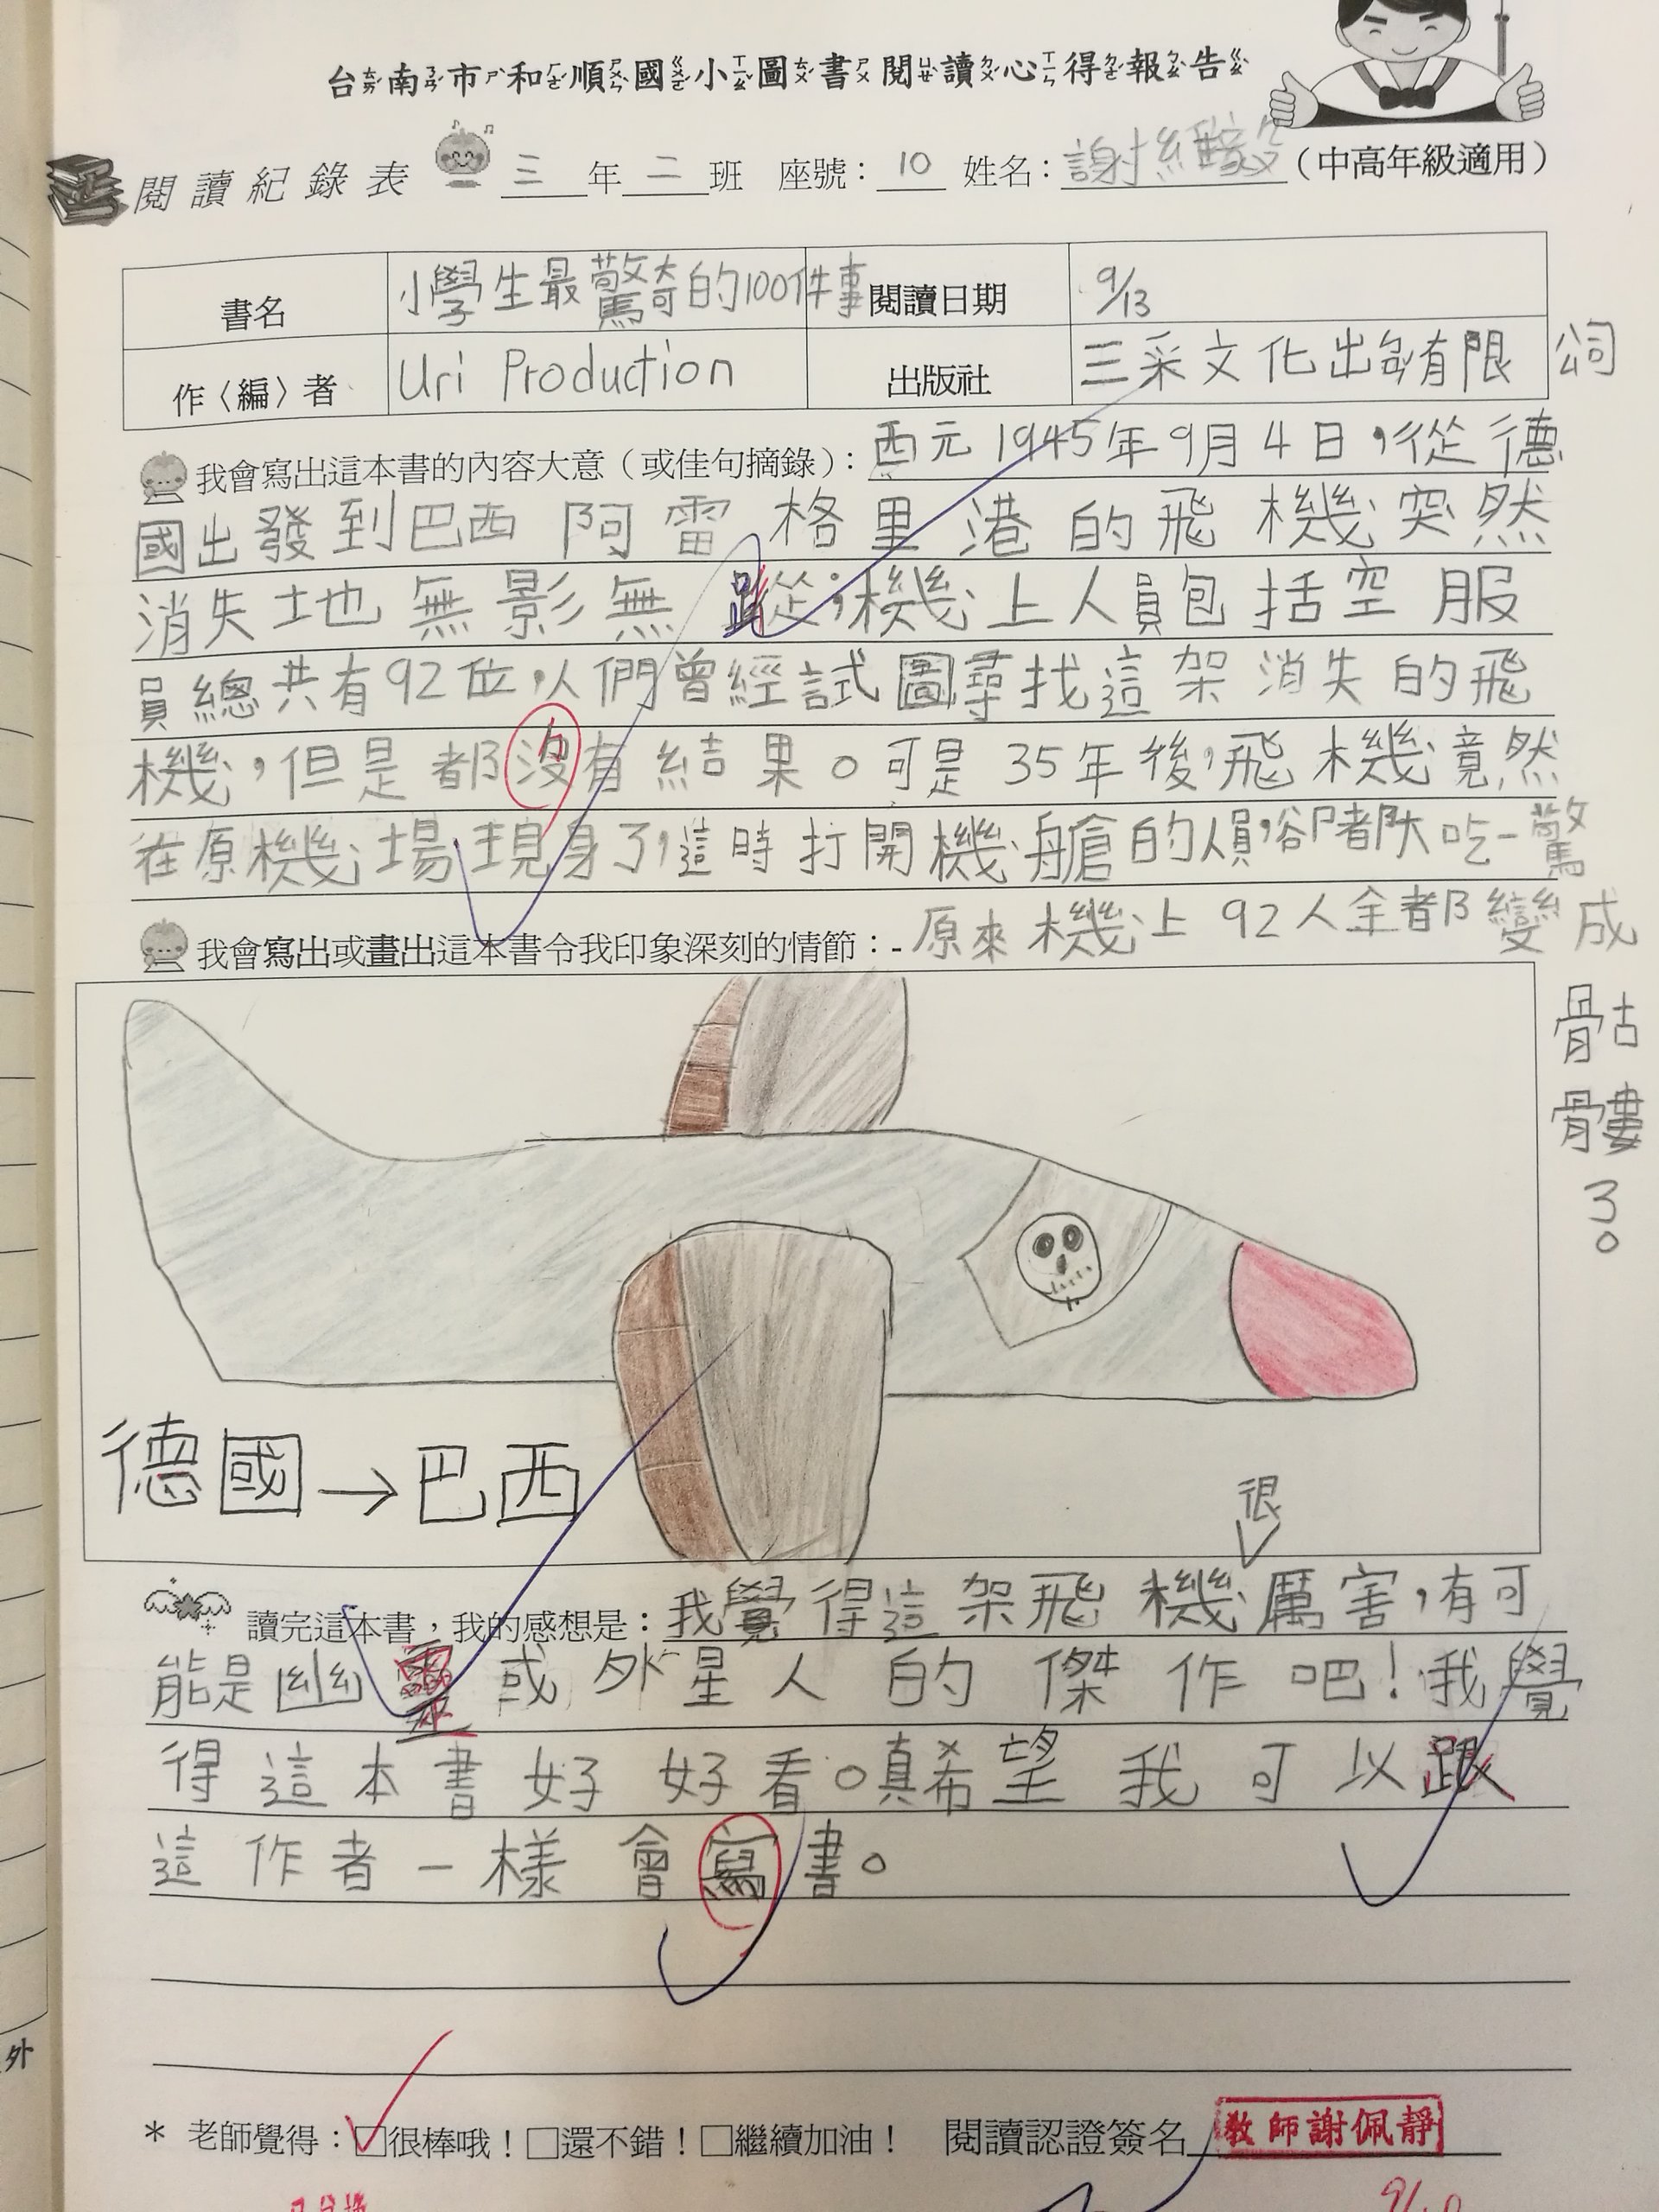 台南市和順國小圖書閱讀心得報告
閱讀紀錄表 三年二班 座號：10 姓名：謝 （中高年級適用）
書名 小學生最驚奇的100件事 閱讀日期 9/13
作〈編〉者 Uri Production 出版社 三采文化出有限公司
我會寫出這本書的內容大意（或佳句摘錄）：西元1945年9月4日，從德
國出發到巴西阿雷格里港的飛機突然
消失地無影無蹤；機上人員包括空服
員總共有92位，人們曾經試圖尋找這架消失的飛
機，但是都沒有結果。可是35年後，飛機竟然
在原機場現身了，這時打開機艙的人員，卻都大吃一驚
我會寫出或畫出這本書令我印象深刻的情節：-原來機上92人全都變成
骷
髏
了。
德國→巴西
很
讀完這本書，我的感想是：我覺得這架飛機厲害，有可
能是幽靈或外星人的傑作吧！我覺
得這本書好好看。真希望我可以跟
這作者一樣會寫書。
外
* 老師覺得：□很棒哦！□還不錯！□繼續加油！ 閱讀認證簽名 教師謝佩靜